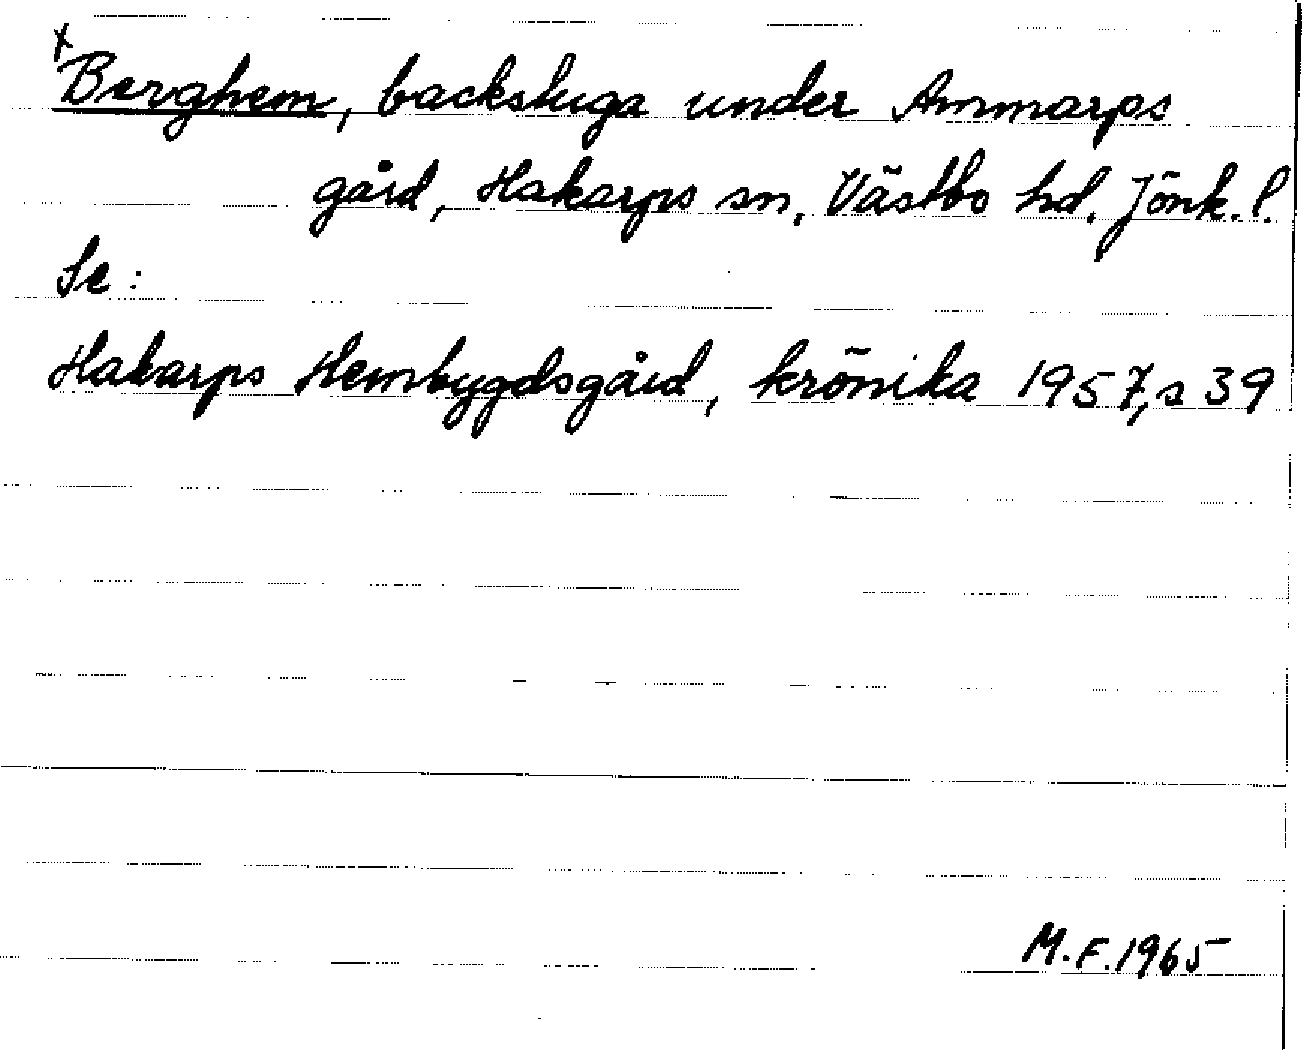 x
Berghem, backstuga under Ammarps
gård, Hakarps sn, Västbo hd. Jönk. l.
Se:
Hakarps Hembygdsgård, krönika 1957, s 39
M.F. 1965